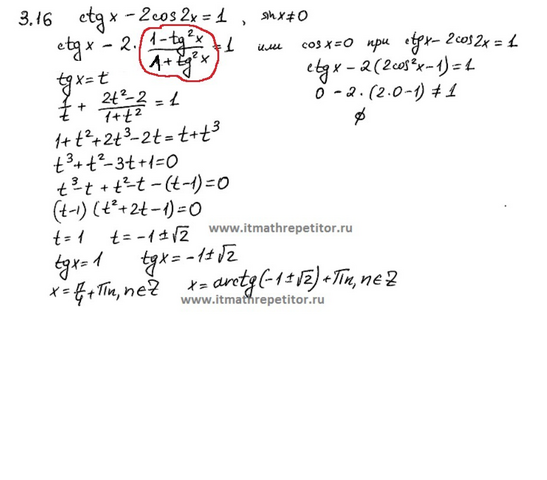 3.16 ctgx - 2cos2x = 1 , sinx≠0
ctgx - 2 · (1-tg²x)/(1+tg²x) = 1 или cosx=0 при ctgx - 2cos2x = 1
tgx = t ctgx - 2(2cos²x-1) = 1
1/t + (2t²-2)/(1+t²) = 1 0 - 2·(2·0-1) ≠ 1
1+t²+2t³-2t = t+t³ ∅
t³+t²-3t+1=0
t³-t + t²-t - (t-1) = 0
(t-1)(t²+2t-1)=0
t=1 t = -1±√2
www.itmathrepetitor.ru
tgx=1 tgx = -1±√2
x = π/4 + πn, n∈Z x = arctg(-1±√2)+πn, n∈Z
www.itmathrepetitor.ru